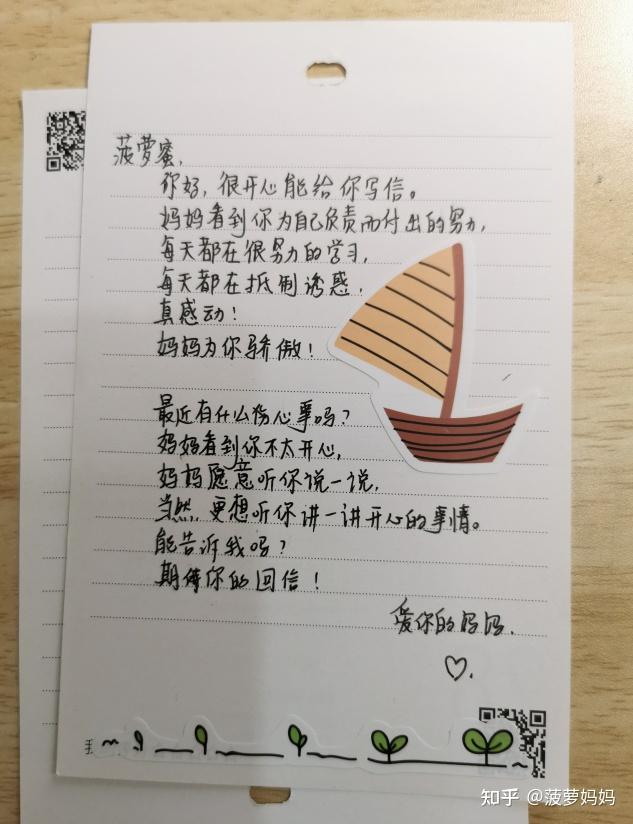 菠萝蜜，
你好，很开心能给你写信。
妈妈看到你为自己负责而付出的努力，
每天都在很努力的学习，
每天都在抵制诱惑，
真感动！
妈妈为你骄傲！
最近有什么伤心事吗？
妈妈看到你不太开心，
妈妈愿意听你说一说，
当然，更想听你讲一讲开心的事情。
能告诉我吗？
期待你的回信！
爱你的妈妈.
知乎 @菠萝妈妈